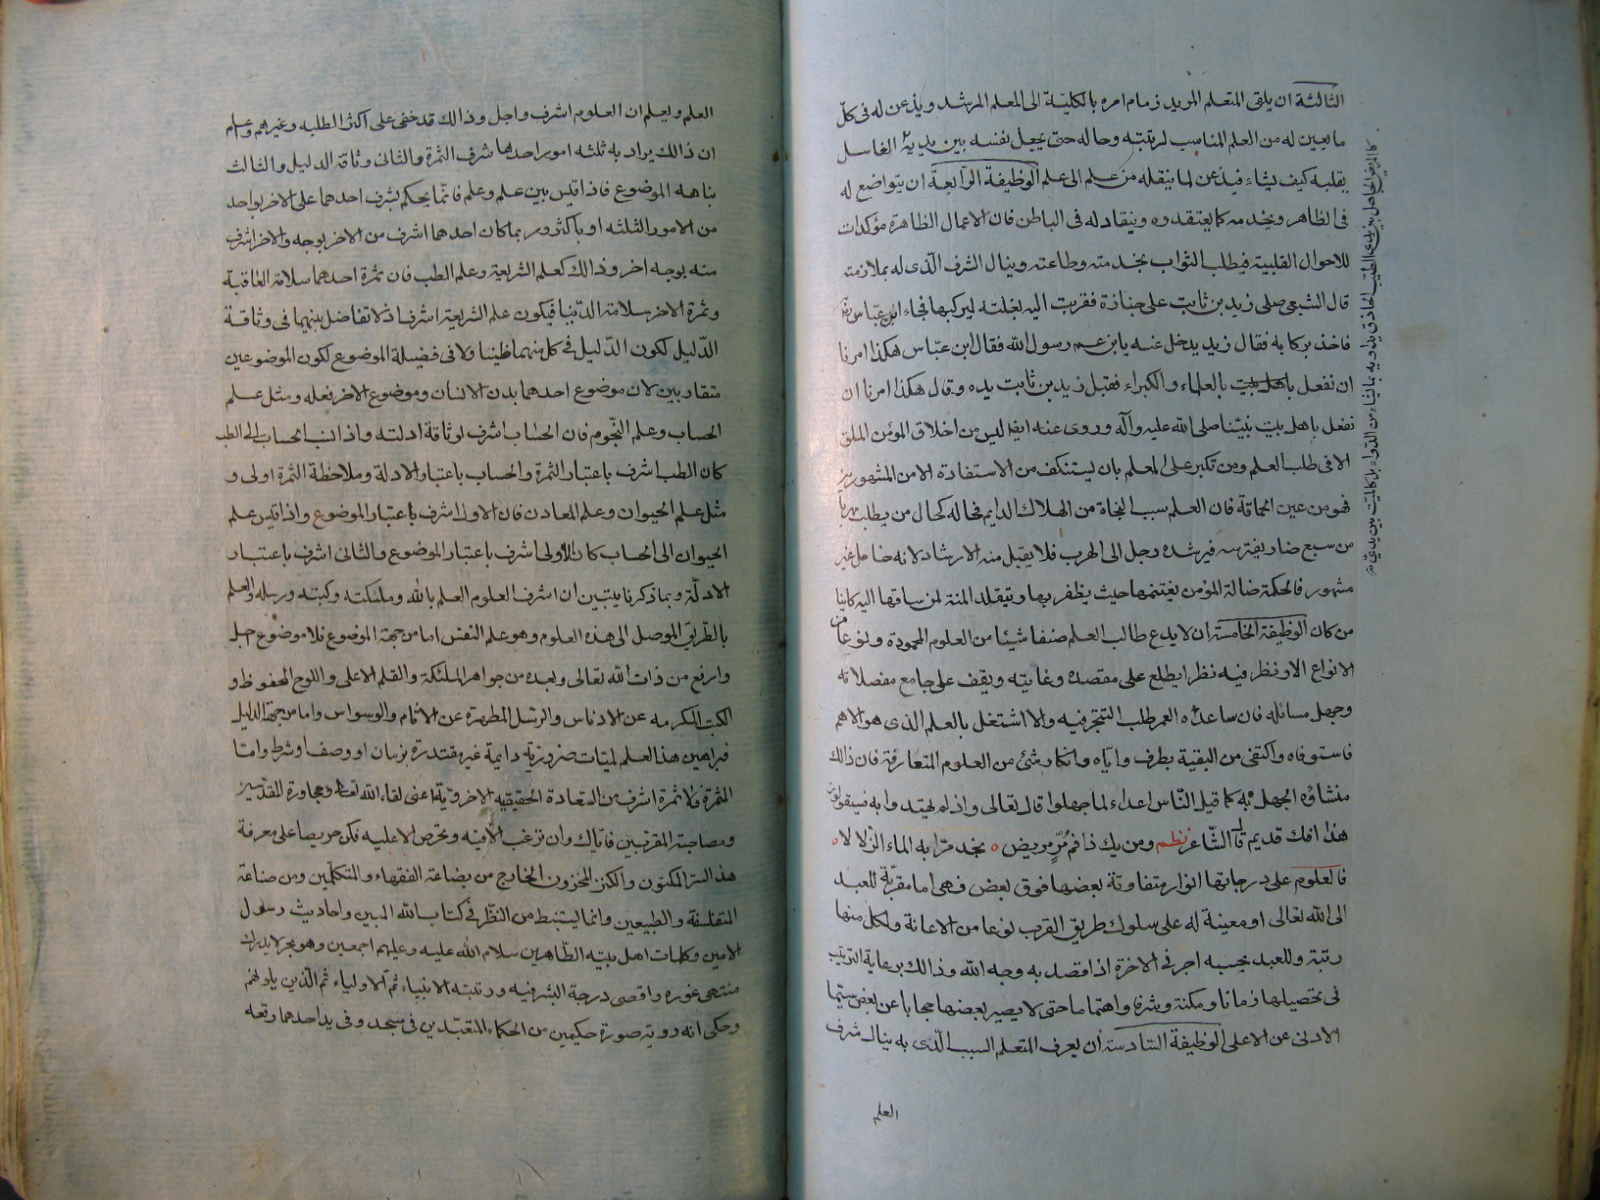 الثالثة ان يلقى المتعلم المريد زمام امره بالكلية الى المعلم المرشد ويذعن له فى كلّ
ما يعين له من العلم المناسب لرتبته وحاله حتى يجعل نفسه بين يديه الغاسل
يقلبه كيف يشاء فيذعن لما ينقله من علم الى علم الوظيفة الرّابعة ان يتواضع له
فى الظاهر ويخدمه كما يعتقده وينقاد له فى الباطن فان الاعمال الظاهرة مؤكدات
للاحوال القلبية فيطلب الثواب بخدمته وطاعته وينال الشرف الّذى له بملازمته
قال الشعبى صلى زيد بن ثابت على جنازة فقربت اليه بغلته ليركبها فجاء ابن عبّاس
فاخذ بركابه فقال زيد يدخل عنه يابن عم رسول الله فقال ابن عباس هكذا امرنا
ان نفعل بالعلماء والكبراء فقبل زيد بن ثابت يده وقال هكذا امرنا ان
نفعل باهل بيت نبيّنا صلى الله عليه وآله وروى عنه ايضا ليس من اخلاق المؤمن الملق
الا فى طلب العلم ومن تكبر على المعلم بان يستنكف من الاستفادة الا من المشهورين
فهو من عين الحماقة فان العلم سبب النجاة من الهلاك الدايم فحاله كحال من يطلب مهربا
من سبع ضار يفترسه فيرشده رجل الى الهرب فلا يقبل منه الارشاد لانه خامل غير
مشهور فالحكمة ضالة المؤمن يغتنمها حيث يظفر بها ويتقلد المنة لمن ساقها اليه كاينا
من كان الوظيفة الخامسة ان لا يدع طالب العلم صنفا شيئا من العلوم المحمودة ونوعا من
الانواع الا ونظر فيه نظرا يطلع على مقصده وغايته ويقف على جامع مفصلاته
وجهل مسائله فان ساعده العمر طلب التبحر فيه والا اشتغل بالعلم الذى هو الاهم
فاستوفاه واكتفى من البقية بطرف واياه وانكار شئ من العلوم المتعارفة فان ذالك
منشاؤه الجهل به كما قيل النّاس اعداء لما جهلوا قال تعالى واذ لم يهتدوا به فسيقولون
هذا افك قديم قال الشّاعر نظم ومن يك ذا فم مُرٍّ مريض ٥ يجد مرّا به الماء الزّلالا ٥
فالعلوم على درجاتها انوار متفاوتة بعضها فوق بعض فهى اما مقرّبة للعبد
الى الله تعالى او معينة له على سلوك طريق القرب نوعا من الاعانة ولكل منها
رتبة وللعبد بحسبه اجر فى الاخرة اذا قصد به وجه الله وذالك برعاية الترتيب
فى تحصيلها زمانا ومكنة وشرفا واهتماما حتى لا يصير بعضها حجابا عن بعض سيّما
الادنى عن الاعلى الوظيفة السّادسة ان يعرف المتعلم السبب الّذى به ينال شرف
العلم
العلم وليعلم ان العلوم اشرف واجل وذالك قد خفى على اكثر الطلبه وغيرهم واعلم
ان ذالك يراد به ثلثه امور احدها شرف الثمرة والثانى وثاقة الدليل والثالث
بناهه الموضوع فاذا قيس بين علم وعلم فانّما يحكم بشرف احدهما على الاخر بواحد
من الامور الثلثه او باكثر وربما كان احدهما اشرف من الاخر بوجه والاخر اشرف
منه بوجه اخر وذالك كعلم الشريعة وعلم الطب فان ثمرة احدهما سلامة العاقبة
وثمرة الاخر سلامة الدّنيا فيكون علم الشريعة اشرف اذ لا تفاضل بينهما فى وثاقة
الدّليل لكون الدّليل فى كل منهما ظنيا ولا فى فضيلة الموضوع لكون الموضوعين
متقاربين لان موضوع احدهما بدن الانسان وموضوع الاخر فعله ومثل علم
الحساب وعلم النّجوم فان الحساب اشرف لوثاقة ادلته واذا نسب الحساب الى الطب
كان الطب اشرف باعتبار الثمرة والحساب باعتبار الادلة وملاحظة الثمرة اولى و
مثل علم الحيوان وعلم المعادن فان الاول اشرف باعتبار الموضوع واذا قيس علم
الحيوان الى الحساب كان الاولى اشرف باعتبار الموضوع والثانى اشرف باعتبار
الادلّة وبما ذكرنا يتبين ان اشرف العلوم العلم بالله وملئكته وكتبه ورسله والعلم
بالطريق الموصل الى هذه العلوم وهو علم النفس اما من جهة الموضوع فلا موضوع اجل
وارفع من ذات الله تعالى وبعده من جواهر الملئكة والقلم الاعلى واللوح المحفوظ و
الكتب المكرمه عن الادناس والرسل المطهرة عن الاثام والوسواس واما من جهة الدليل
فبراهين هذا العلم لميّات ضرورية دايمة غير مقتدرة بزمان او وصف او شرط وامّا
الثمرة فلا ثمرة اشرف من السّعادة الحقيقيه الاخرويّة اعنى لقاء الله تعالى ومجاورة المقدّسين
ومصاحبة المقربين فايّاك وان ترغب الا فيه وتحرص الا عليه فكن حريصا على معرفة
هذا السرّ المكنون والكنز المخزون الخارج من بضاعة الفقهاء والمتكلّمين ومن صناعة
المتفلسفة والطبيعين وانما يستنبط من النّظر فى كتاب الله المبين واحاديث رسول
الامين وكلمات اهل بيته الطّاهرين سلام الله عليه وعليهم اجمعين وهو بحر لا يدرك
منتهى غوره واقصى درجة البشر فيه ورتبته الانبياء ثمّ الاولياء ثم الّذين يلونهم
وحكى انه روية صورة حكيمين من الحكماء المتعبّدين فى مسجد وفى يد احدهما رقعه